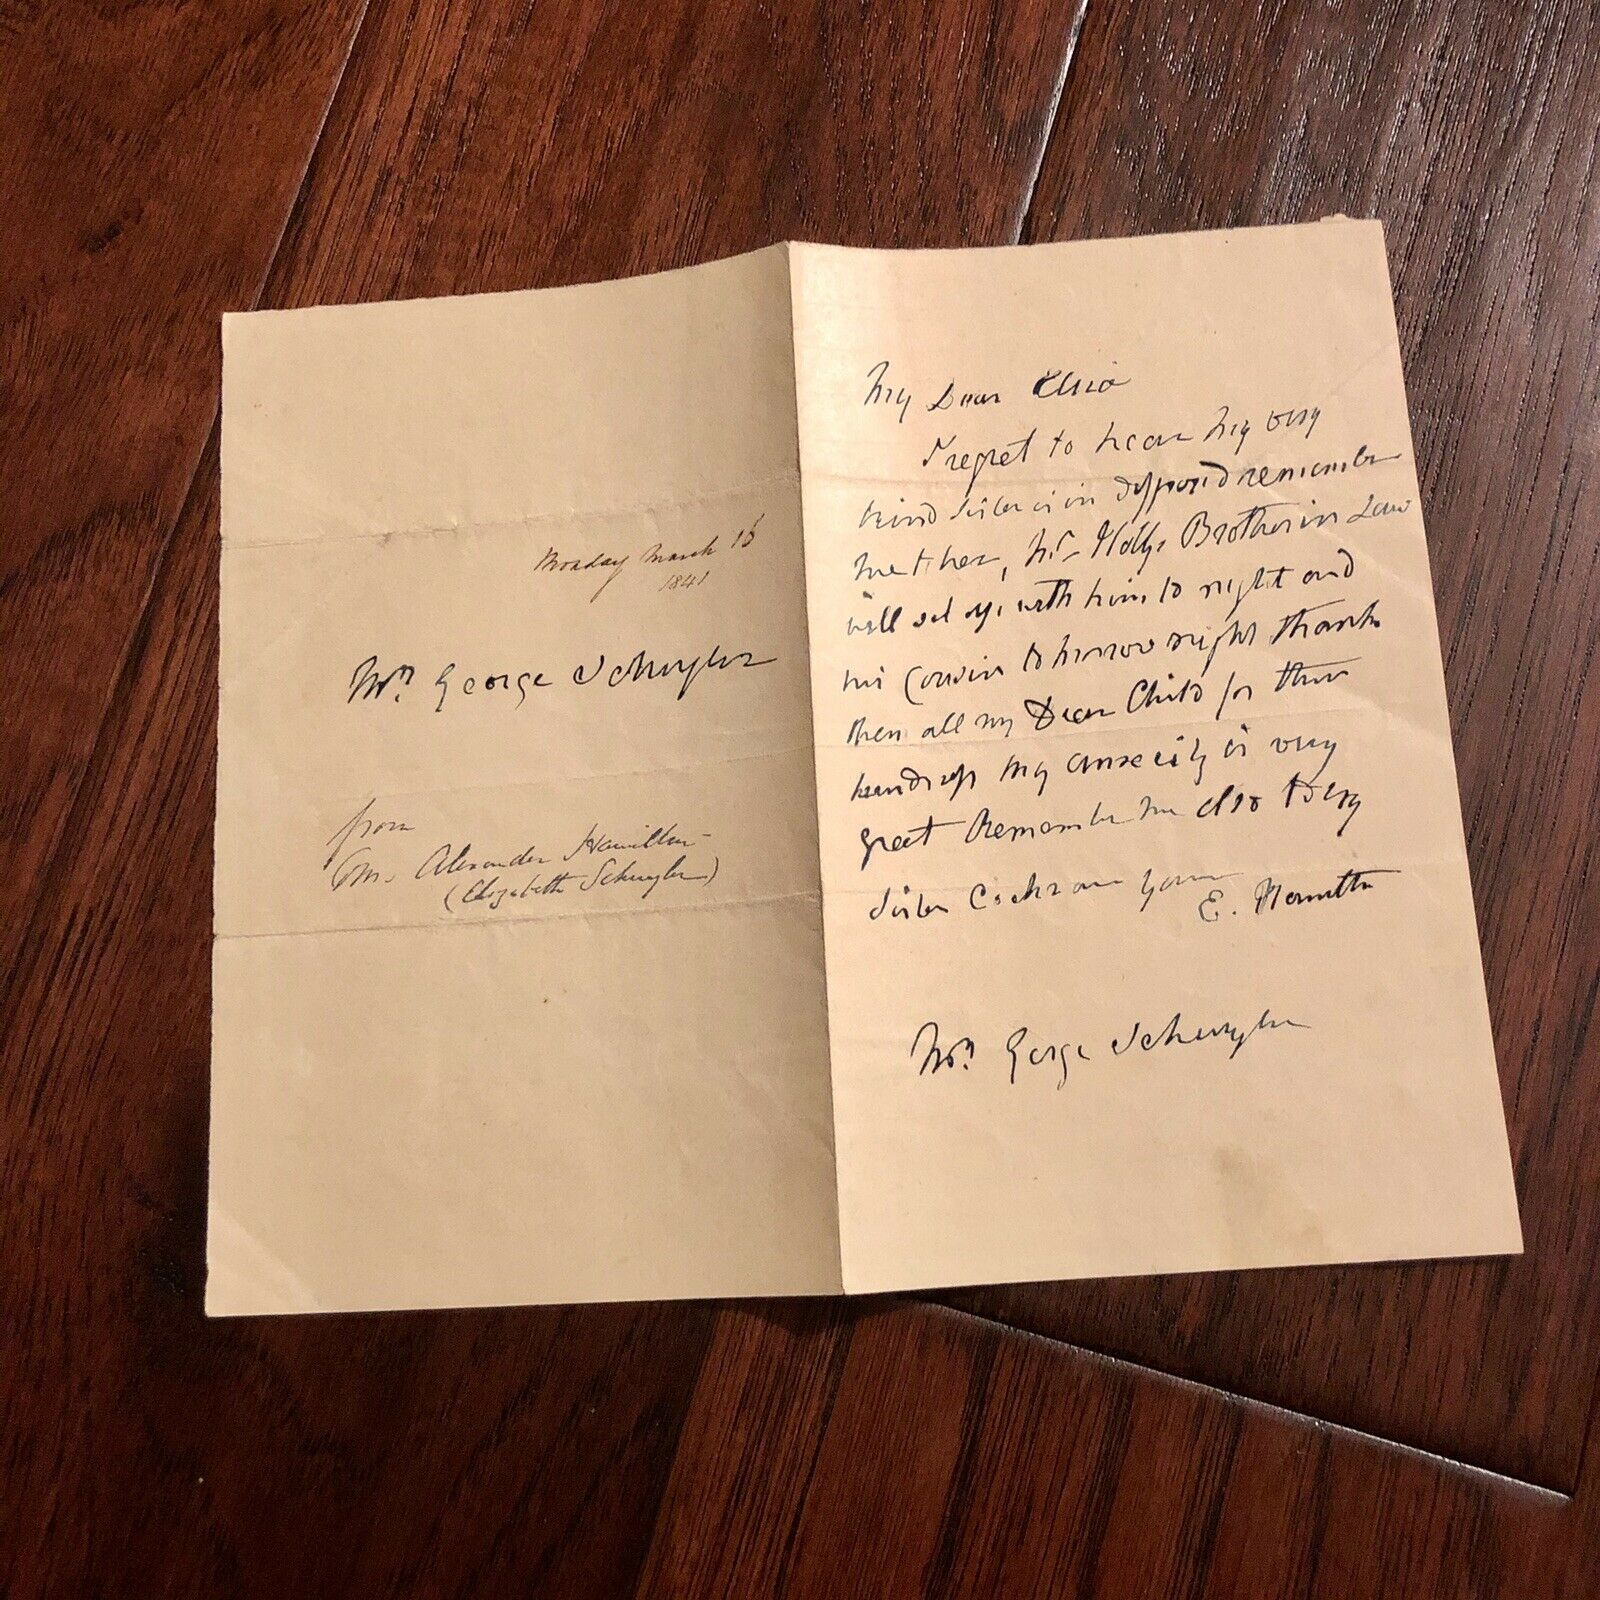 Monday March 15
1841
Mrs. George Schuyler
from
Mrs. Alexander Hamilton
(Elizabeth Schuyler)
My Dear Eliza
I regret to hear my very
kind Sister is in remember
me to her, Mr Brother in Law
will set up with him to night and
his Cousin to morrow night thank
them all my Dear Child for their
kindness my anxeity is very
great Remember me also to my
Sister Cochran yours
E. Hamilton
Mrs. George Schuyler